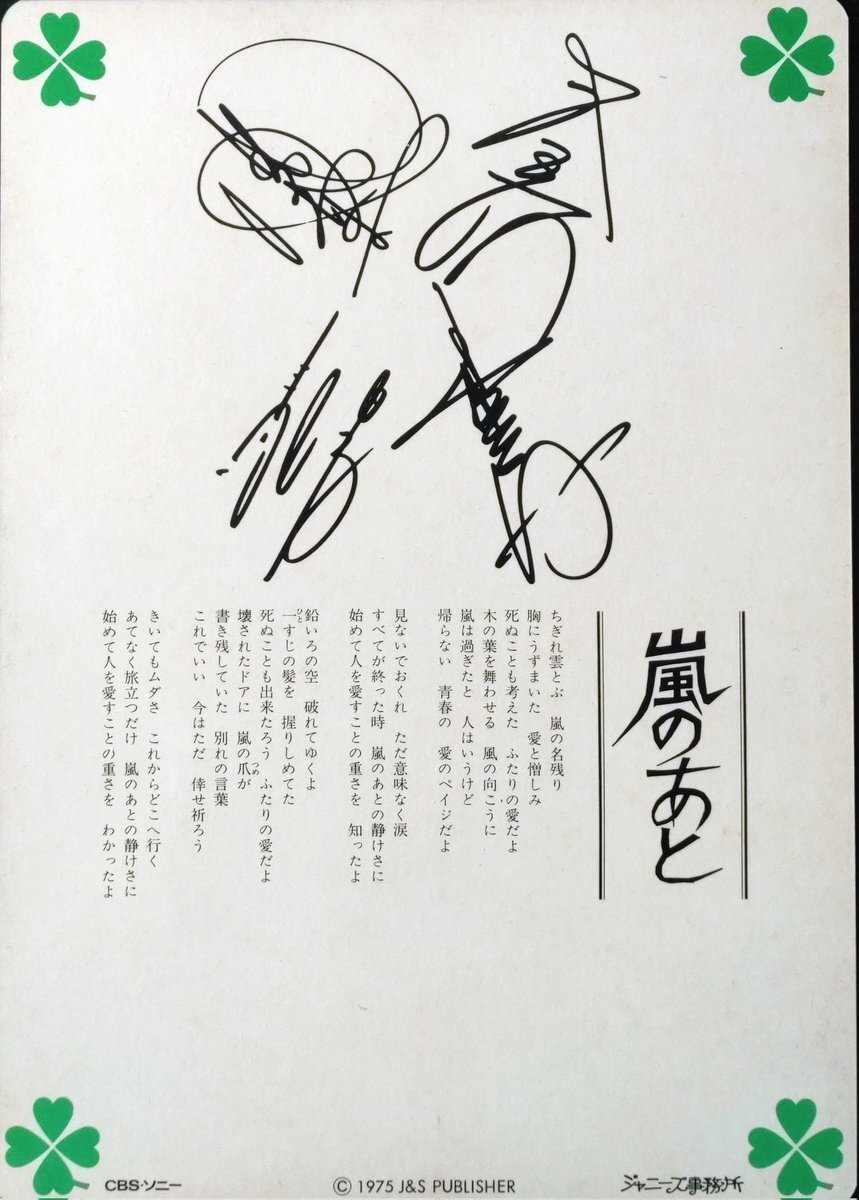 嵐のあと
ちぎれ雲とぶ 嵐の名残り
胸にうずまいた 愛と憎しみ
死ぬことも考えた ふたりの愛だよ
木の葉を舞わせる 風の向こうに
嵐は過ぎたと 人はいうけど
帰らない 青春の 愛のペイジだよ
見ないでおくれ ただ意味なく涙
すべてが終った時 嵐のあとの静けさに
始めて人を愛すことの重さを 知ったよ
鉛いろの空 破れてゆくよ
一すじの髪を 握りしめてた
死ぬことも出来たろう ふたりの愛だよ
壊されたドアに 嵐の爪が
書き残していた 別れの言葉
これでいい 今はただ 倖せ祈ろう
きいてもムダさ これからどこへ行く
あてなく旅立つだけ 嵐のあとの静けさに
始めて人を愛すことの重さを わかったよ
CBS・ソニー
© 1975 J&S PUBLISHER
ジャニーズ事務所